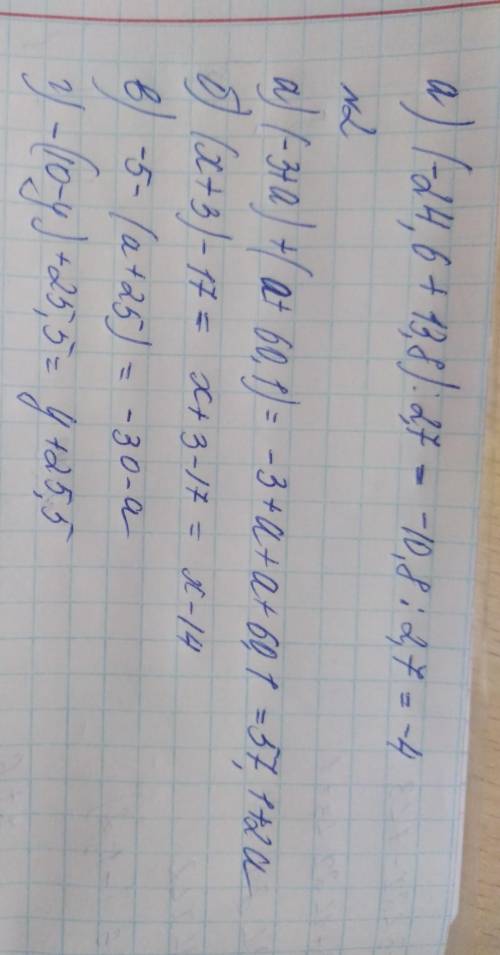 а) (-24,6 + 13,8) : 2,7 = -10,8 : 2,7 = -4
№2
а) (-3+а) + (а+ 60,1) = -3+а+а+60,1 = 57,1+2а
б) (х+3) - 17 = х+3-17 = х-14
в) -5- (а+25) = -30-а
г) -(10-у) +25,5 = у+25,5